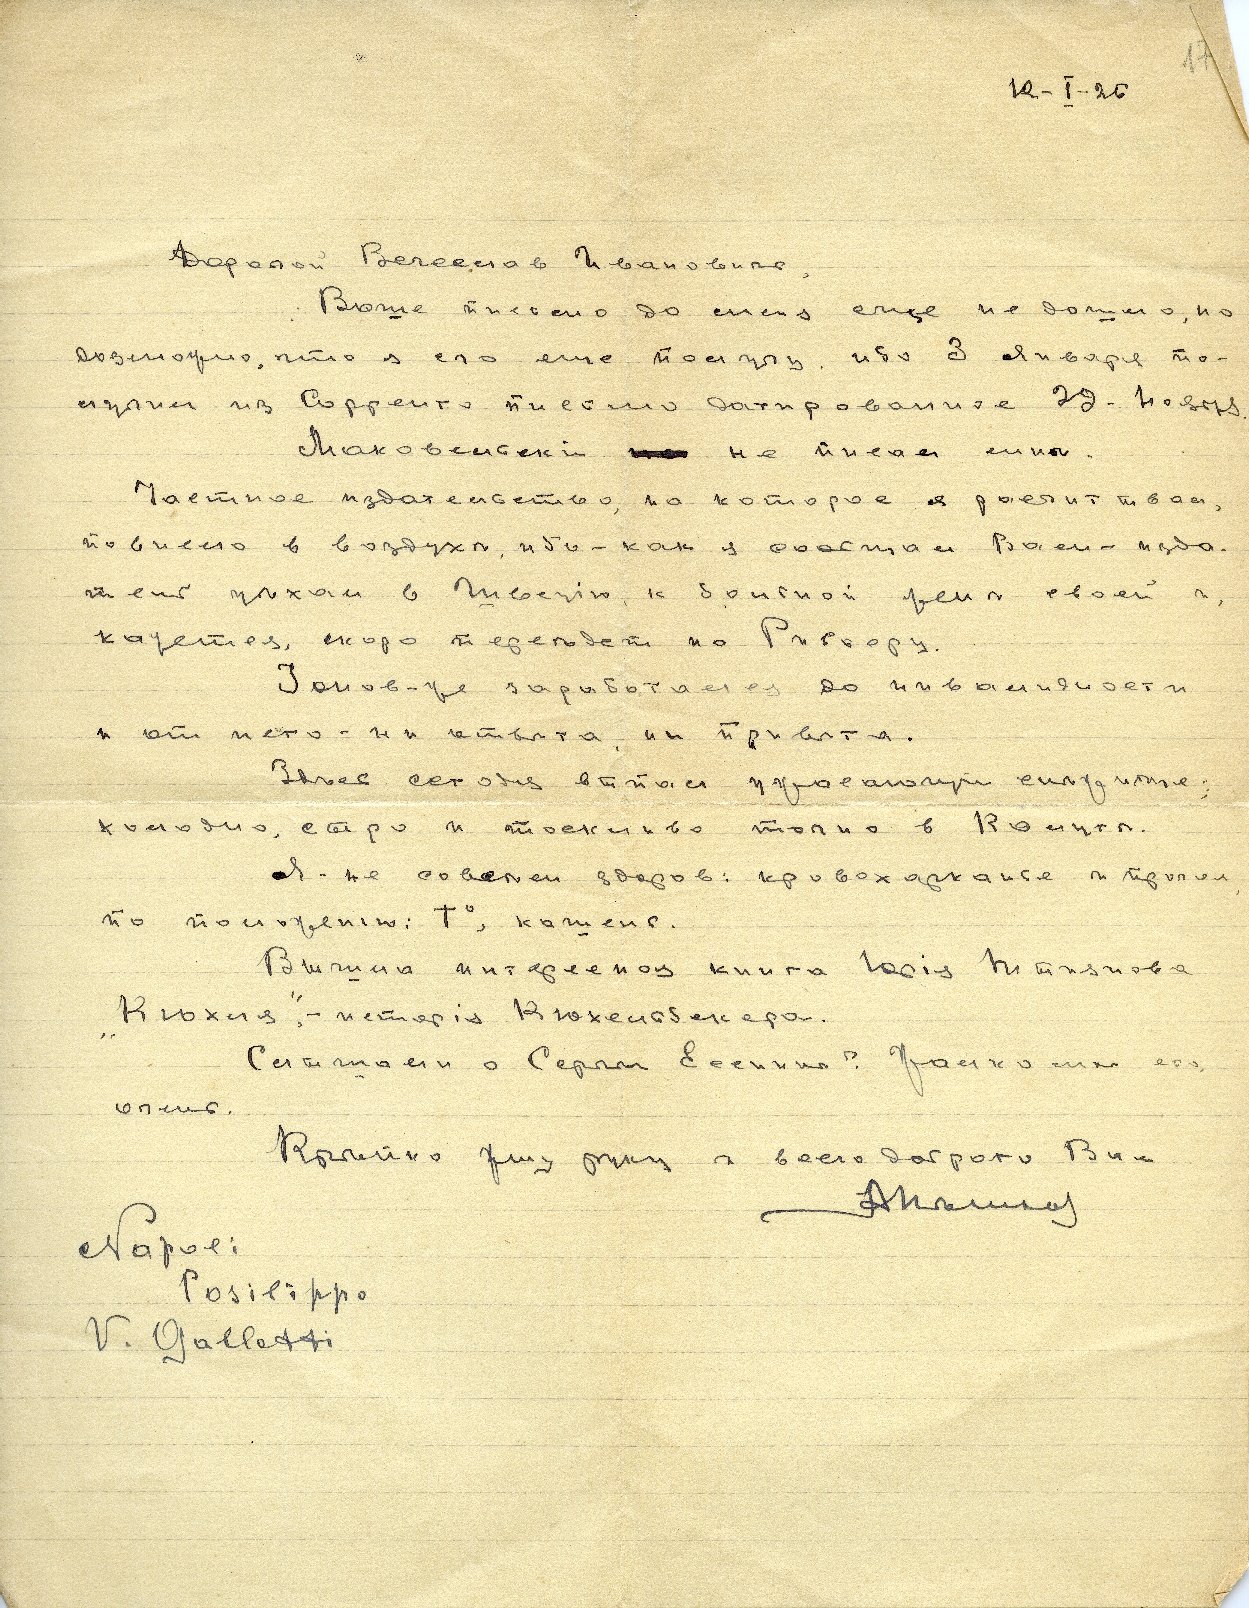 17
12-I-26
Дорогой Вечеслав Ивановичъ,
Ваше письмо до меня еще не дошло, но
возможно, что я его еще получу, ибо 3 января по-
лучил из Сорренто письмо датированное 29-
Маковельскій не писал мнѣ.
Частное издательство, на которое я расчитывал,
повисло в воздухѣ, ибо - как я сообщал Вам - изда-
тель уѣхал в Швецію, к больной женѣ своей и,
кажется, скоро переѣдет на Ривьеру.
Ионов-же заработался до инвалидности
и от него - ни отвѣта, ни привѣта.
Здѣсь сегодня выпал ужасающій снѣжище;
холодно, сыро и тоскливо точно в Калугѣ.
Я - не совсѣм здоров: кровохарканье и прочее,
по положенію: Т°, кашель.
Вышла интересная книга Юрія Тынянова
„Кюхля“, - исторія Кюхельбекера.
Слышали о Сергѣѣ Есенинѣ? Жалко мнѣ его,
очень.
Крѣпко жму руку и всего доброго Вам
АПѣшков
Napoli
Posilippo
V. Galletti